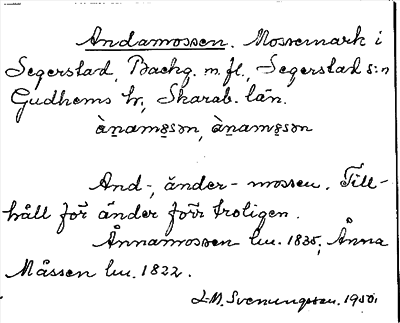 Andamossen. Mossemark i
Segerstad, Backg. m. fl., Segerstad s:n
Gudhems hr, Skarab. län.
ànamɷsən, ànamɷsən
And-, änder-mossen. Till-
håll för änder förr troligen.
Ånnamossen lm. 1835, Ånna
Måssen lm. 1822.
J.M. Svenungsson. 1950.